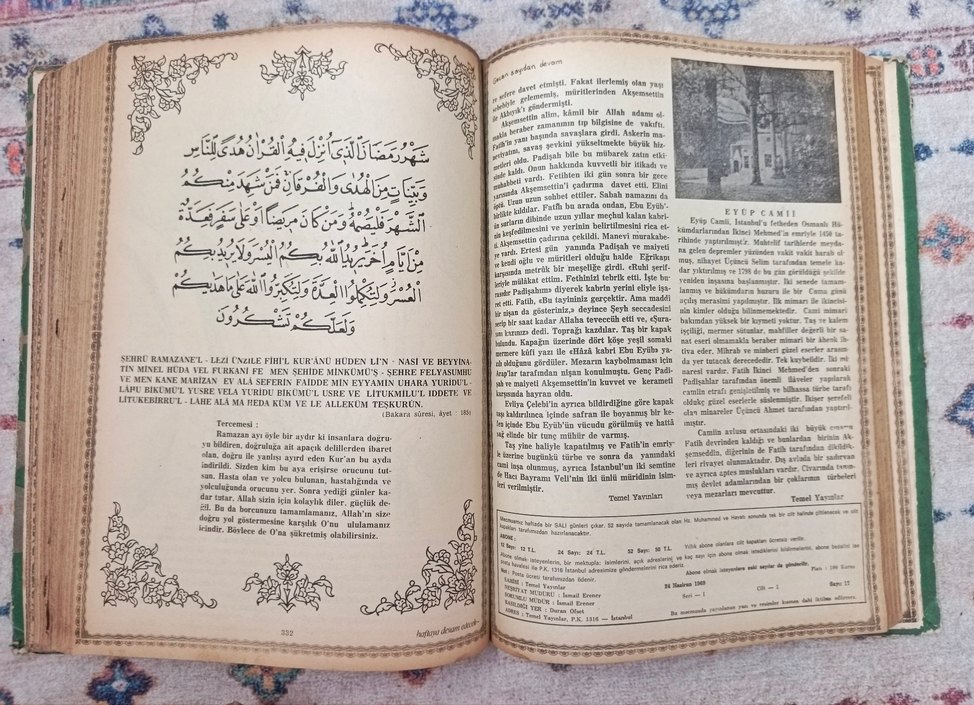 شَهْرُ رَمَضَانَ الَّذِى اُنْزِلَ فِيهِ الْقُرْاٰنُ هُدًى لِلنَّاسِ
وَبَيِّنَاتٍ مِنَ الْهُدٰى وَالْفُرْقَانِ فَمَنْ شَهِدَ مِنْكُمُ
الشَّهْرَ فَلْيَصُمْهُ وَمَنْ كَانَ مَرِيضًا اَوْ عَلٰى سَفَرٍ فَعِدَّةٌ
مِنْ اَيَّامٍ اُخَرَ يُرِيدُ اللّٰهُ بِكُمُ الْيُسْرَ وَلَا يُرِيدُ بِكُمُ
الْعُسْرَ وَلِتُكْمِلُوا الْعِدَّةَ وَلِتُكَبِّرُوا اللّٰهَ عَلٰى مَا هَدٰيكُمْ
وَلَعَلَّكُمْ تَشْكُرُونَ
ŞEHRÜ RAMAZANE'L - LEZİ ÜNZİLE FİHİ'L KUR'ÂNÜ HÜDEN Lİ'N - NASİ VE BEYYİNA-
TİN MİNEL HÜDA VEL FURKANİ FE MEN ŞEHİDE MİNKÜMÜ'Ş - ŞEHRE FELYASUMHU
VE MEN KANE MARİZAN EV ALÂ SEFERİN FAİDDE MİN EYYAMIN UHARA YURİDU'L -
LÂHU BİKÜMÜ'L YUSRE VELA YURİDU BİKÜMÜ'L USRE VE LİTUKMİLU'L İDDETE VE
LİTUKEBİRRU'L - LÂHE ALÂ MA HEDA KÜM VE LE ALLEKÜM TEŞKURÜN.
(Bakara sûresi, âyet : 185)
Tercemesi :
Ramazan ayı öyle bir aydır ki insanlara doğru-
yu bildiren, doğruluğa ait apaçık delillerden ibaret
olan, doğru ile yanlışı ayırd eden Kur'an bu ayda
indirildi. Sizden kim bu aya erişirse orucunu tut-
sun. Hasta olan ve yolcu bulunan, hastalığında ve
yolculuğunda orucunu yer. Sonra yediği günler ka-
dar tutar. Allah sizin için kolaylık diler, güçlük de-
ğil. Bu da borcunuzu tamamlamanız, Allah'ın size
doğru yol göstermesine karşılık O'nu ululamanız
içindir. Böylece de O'na şükretmiş olabilirsiniz.
332
haftaya devam edecek
Geçen sayıdan devam
ve sefere davet etmişti. Fakat ilerlemiş olan yaşı
sebebiyle gelememiş, müritlerinden Akşemsettin
ile Akbıyık'ı göndermişti.
Akşemsettin alim, kâmil bir Allah adamı ol-
makla beraber zamanının tıp bilgisine de vakıftı.
Fatih'in yanı başında savaşlara girdi. Askerin ma-
neviyatını, savaş şevkini yükseltmekte büyük hiz-
metleri oldu. Padişah bile bu mübarek zatın etki-
sinde kaldı. Onun hakkında kuvvetli bir itikadı ve
muhabbeti vardı. Fetihten iki gün sonra bir gece
yarısında Akşemsettin'i çadırına davet etti. Elini
öptü. Uzun uzun sohbet ettiler. Sabah namazını da
birlikte kıldılar. Fatih bu arada ondan, Ebu Eyüb'-
ün surların dibinde uzun yıllar meçhul kalan kabri-
nin keşfedilmesini ve yerinin belirtilmesini rica et-
ti. Akşemsettin çadırına çekildi. Manevi murakabe-
ye vardı. Ertesi gün yanında Padişah ve maiyeti
ve kendi oğlu ve müritleri olduğu halde Eğrikapı
karşısında metrûk bir meşeliğe girdi. «Ruhi şerif-
leriyle mülâkat ettim. Fethinizi tebrik etti. İşte bu-
rasıdır Padişahım» diyerek kabrin yerini eliyle işa-
ret etti. Fatih, «Bu tayininiz gerçektir. Ama maddi
bir nişan da gösteriniz.» deyince Şeyh seccadesini
serip bir saat kadar Allaha teveccüh etti ve, «Şura-
sını kazınız» dedi. Toprağı kazdılar. Taş bir kapak
bulundu. Kapağın üzerinde dört köşe yeşil somaki
mermere kûfi yazı ile «Hâzâ kabri Ebu Eyüb» ya-
zılı olduğunu gördüler. Mezarın kaybolmaması için
Arap'lar tarafından nişan konulmuştu. Genç Padi-
şah ve maiyeti Akşemsettin'in kuvvet ve kerameti
karşısında hayrandı.
Evliya Çelebi'in ayrıca bildirdiğine göre kapak
taşı kaldırılınca içinde safran ile boyanmış bir ke-
fen içinde Ebu Eyüb'ün vücudu görülmüş ve hattâ
sağ elinde bir tunç mühür de varmış.
Taş yine haliyle kapatılmış ve Fatih'in emriy-
le üzerine bugünkü türbe ve sonra da yanındaki
cami inşa olunmuş, ayrıca İstanbul'un iki semtine
de Hacı Bayramı Veli'nin iki ünlü müridinin isim-
leri verilmiştir.
Temel Yayınları
EYÜP CAMİİ
Eyüp Camii, İstanbul'u fetheden Osmanlı Hü-
kümdarlarından İkinci Mehmed'in emriyle 1450 ta-
rihinde yaptırılmıştır. Muhtelif tarihlerde meyda-
na gelen depremler yüzünden vakit vakit harab ol-
muş, nihayet Üçüncü Selim tarafından temele ka-
dar yıktırılmış ve 1798 de bu gün görüldüğü şekilde
yeniden inşasına başlanmıştır. İki senede tamam-
lanmış ve hükümdarın huzuru ile bir Cuma günü
açılış merasimi yapılmıştır. İlk mimarı ile ikincisi-
nin kimler olduğu bilinmemektedir. Cami mimari
bakımdan yüksek bir kıymeti yoktur. Taş ve kalem
işçiliği, mermer sütunlar, mahfiller değerli bir sa-
nat eseri olmamakla beraber mimari bir âhenk ih-
tiva eder. Mihrab ve minberi güzel eserler arasın-
da yer tutacak derecededir.
naresi vardır. Fatih İkinci Mehmed'den sonraki
Padişahlar tarafından önemli ilâveler yapılarak
camiin etrafı genişletilmiş ve bilhassa türbe tarafı
oldukça güzel eserlerle süslenmiştir. İkişer şerefeli
olan minareler Üçüncü Ahmet tarafından yaptırıl-
mıştır.
Camiin avlusu ortasındaki iki büyük çınarın
Fatih devrinden kaldığı ve bunlardan birinin Ak-
şemseddin, diğerinin de Fatih tarafından dikildik-
leri rivayet olunmaktadır. Dış avluda bir şadırvan
ve ayrıca aptes muslukları vardır. Civarında tanın-
mış devlet adamlarından bir çoklarının türbeleri
veya mezarları mevcuttur.
Temel Yayınlar
Mecmuamız haftada bir SALI günleri çıkar. 52 sayıda tamamlanacak olan Hz. Muhammed ve Hayatı sonunda tek bir cilt halinde ciltlenecek ve cilt
kapakları tarafımızdan hazırlanacaktır.
ABONE :
12 Sayı: 12 T.L. 24 Sayı: 24 T.L. 52 Sayı: 50 T.L. Yıllık abone olanlara cilt kapakları ücretsiz verilir.
Abone olmak isteyenlerin, bir mektupla: isimlerini, açık adreslerini ve kaç sayı için abone olmak istediklerini bildirmelerini, abone bedelini ise
posta havalesi ile P.K. 1316 İstanbul adresimize göndermelerini rica ederiz.
Not : Posta ücreti tarafımızdan ödenir. Abone olmak isteyenlere eski sayılar da gönderilir.
SAHİBİ : Temel Yayınları 24 Haziran 1969 Fiatı : 100 Kuruş
NEŞRİYAT MÜDÜRÜ : İsmail Erener Seri — 1 Cilt — 1 Sayı: 17
SORUMLU MÜDÜR : İsmail Erener
BASILDIĞI YER : Duran Ofset
ADRES : Temel Yayınlar, P.K. 1316 — İstanbul Bu mecmuada yayınlanan yazı ve resimler kısmen dahi iktibas edilemez.